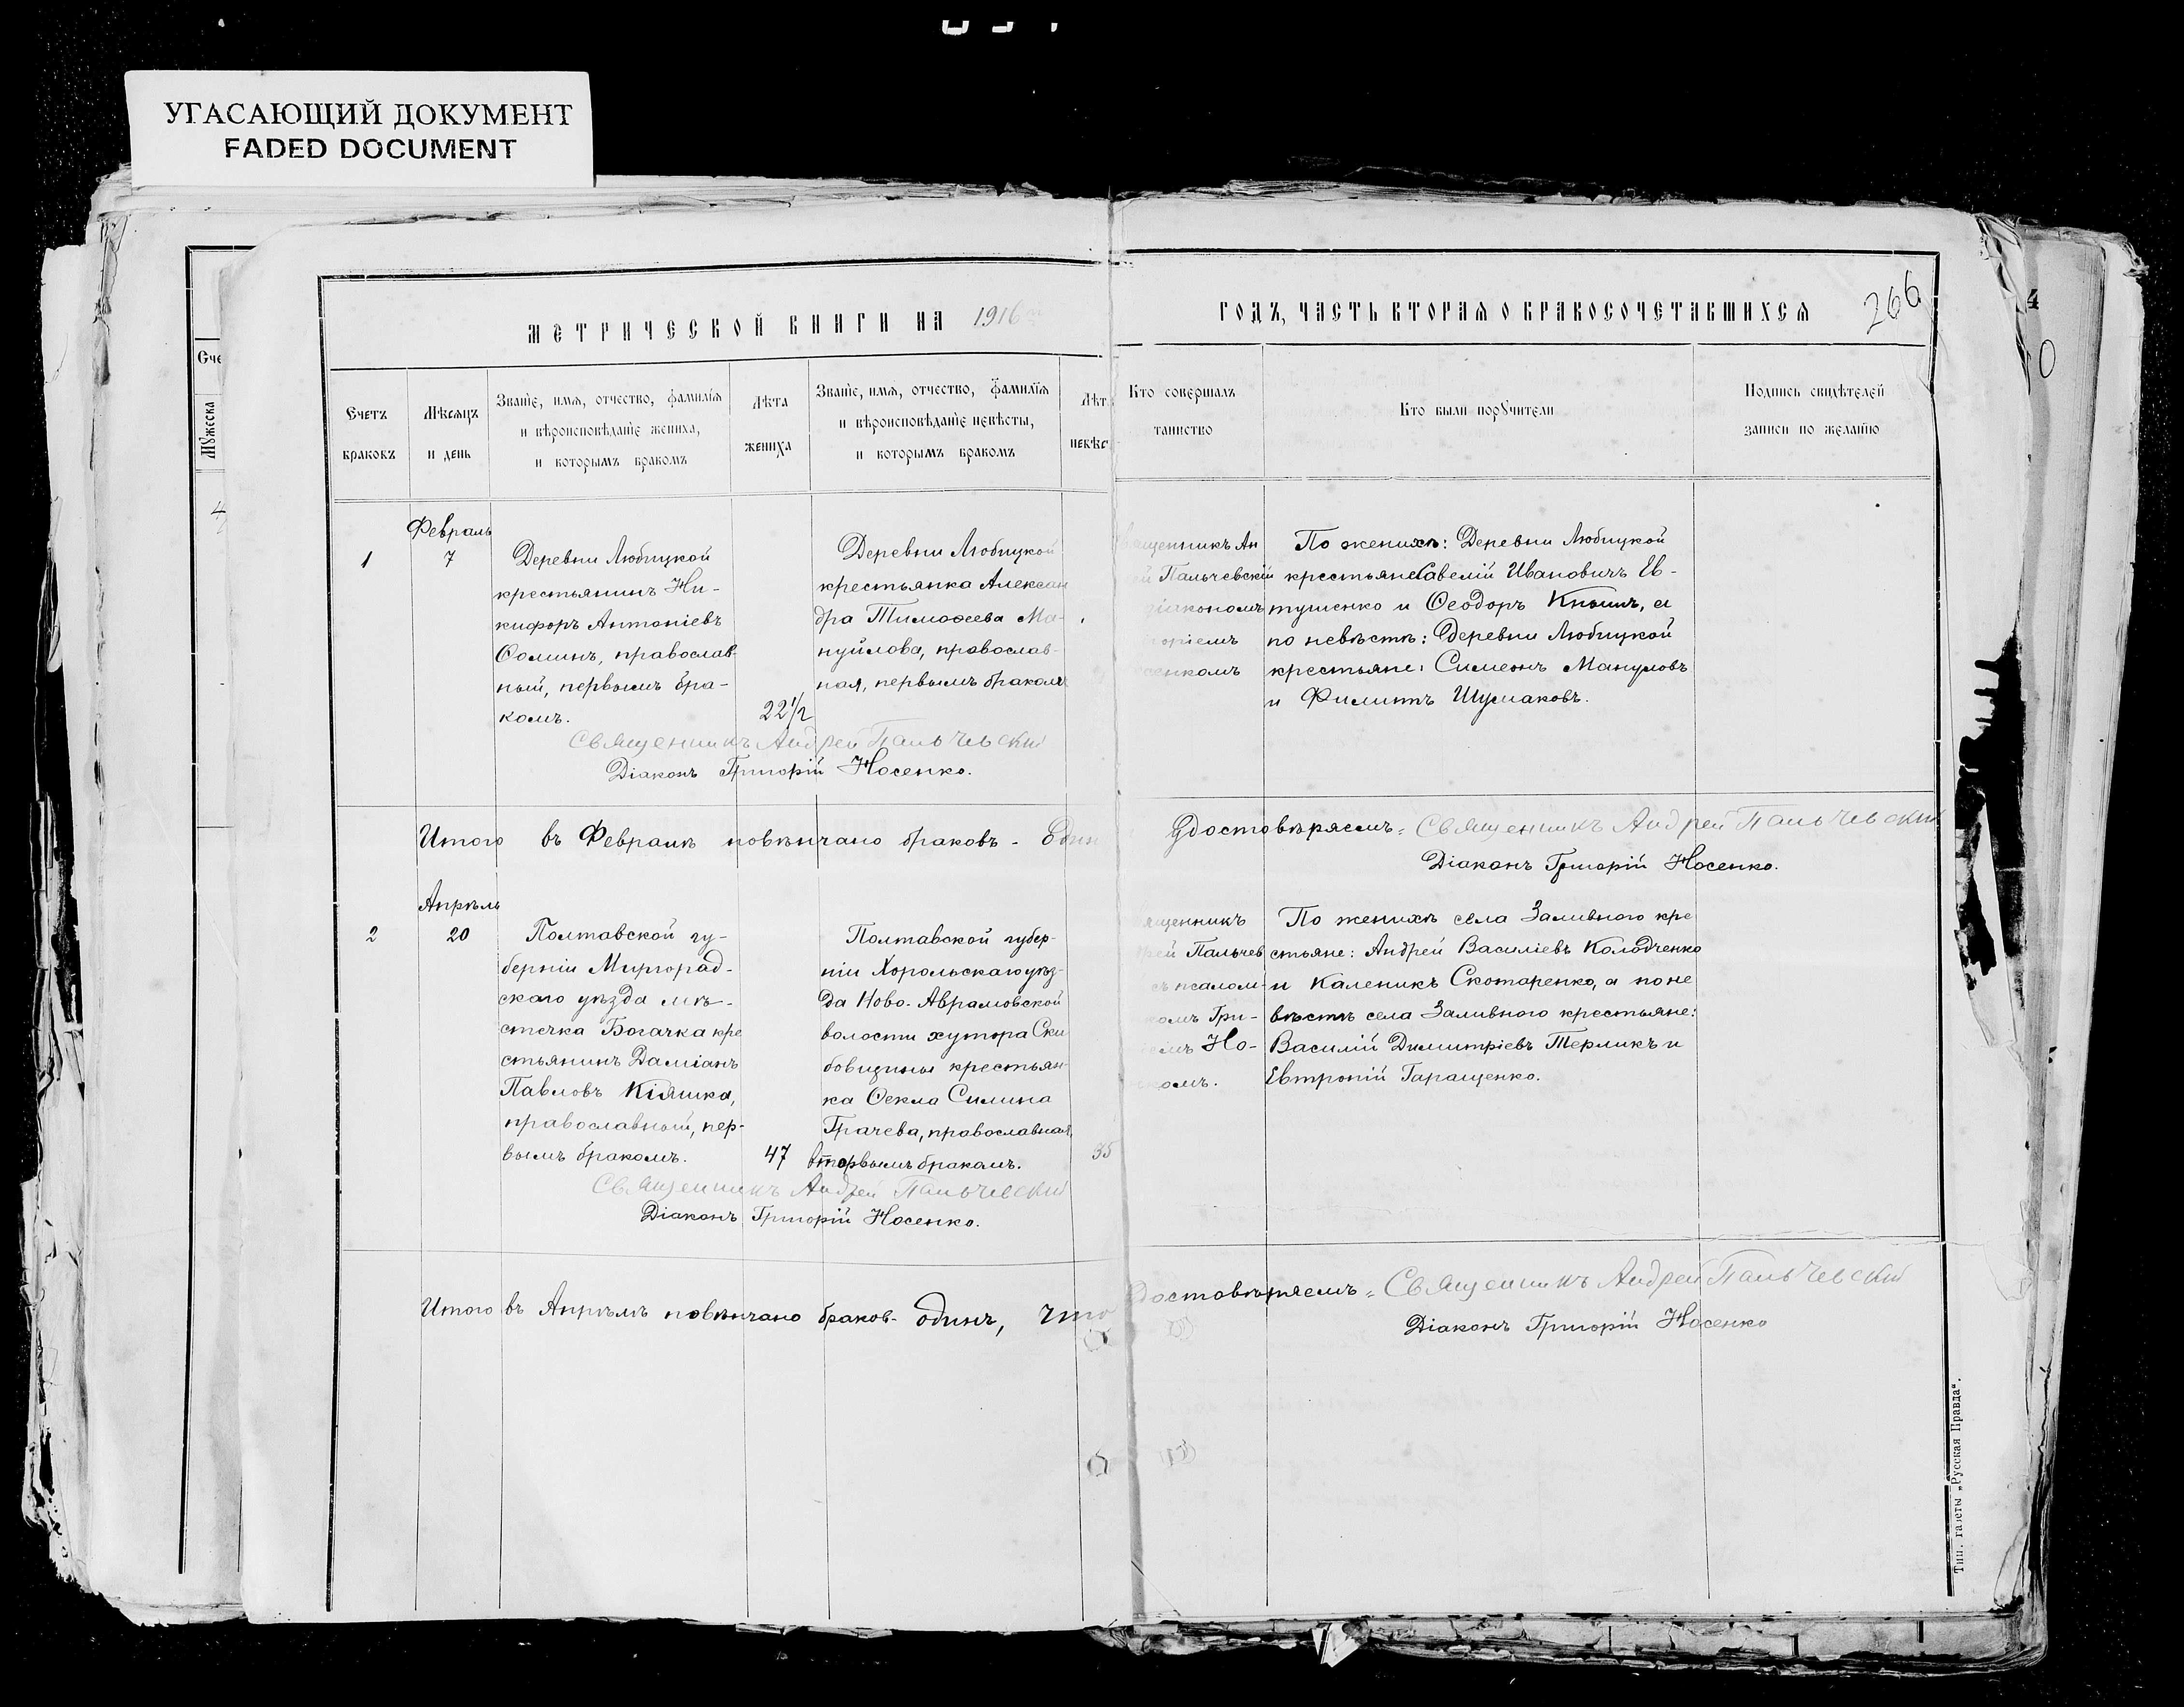 УГАСАЮЩИЙ ДОКУМЕНТ
FADED DOCUMENT
МЕТРИЧЕСКОЙ КНИГИ НА 1916
ГОДЪ, ЧАСТЬ ВТОРАЯ О БРАКОСОЧЕТАВШИХСЯ
266
Счетъ
браковъ
Мѣсяцъ
и день
Званіе, имя, отчество, фамилія
и вѣроисповѣданіе жениха,
и которымъ бракомъ
Лѣта
жениха
Званіе, имя, отчество, фамилія
и вѣроисповѣданіе невѣсты,
и которымъ бракомъ
Лѣт
невѣс
Кто совершалъ
таинство
Кто были поручители
Подпись свидѣтелей
записи по желанію
Мужеска
1
Февраль
7
Деревни Любицкой
крестьянинъ Ни-
кифоръ Антоніевъ
Ѳоминъ, православ-
ный, первымъ бра-
комъ.
22 1/2
Деревни Любицкой
крестьянка Алексан
дра Тимоѳеева Ма-
нуйлова, православ-
ная, первымъ бракомъ
ященникъ Ан
й Пальчевскій
діакономъ
горіемъ
сенкомъ
По женихѣ: Деревни Любицкой
крестьяне Савелій Ивановичъ Ев-
тушенко и Ѳеодоръ а
по невѣстѣ: Деревни Любицкой
крестьяне: Симеонъ Мануловъ
и Филиппъ Шумаковъ.
Священникъ Андрей Пальчевскій
Діаконъ Григорій Носенко.
Итого въ Февралѣ повѣнчано браковъ - Един
Удостовѣряемъ: Священникъ Андрей Пальчевскій
Діаконъ Григорій Носенко.
2
Апрѣль
20
Полтавской гу-
берніи Миргород-
скаго уѣзда мѣ-
стечка Богачка кре
стьянинъ Даміанъ
Павловъ Кіяшка,
православный, пер-
вымъ бракомъ.
47
Полтавской губер-
ніи Хорольскаго уѣз-
да Ново-Аврамовской
волости хутора Ски
бовщины крестьян-
ка Ѳекла Силина
Грачева, православная,
вторымъ бракомъ.
35
ященникъ
рей Пальчев
съ псалом-
омъ Гри-
емъ Но-
омъ.
По женихѣ села Заливного кре
стьяне: Андрей Василіевъ Колодченко
и Каленикъ Скотаренко, а по не
вѣстѣ села Заливного крестьяне:
Василій Димитріевъ Терликъ и
Евтропій Таращенко.
Священникъ Андрей Пальчевскій
Діаконъ Григорій Носенко.
Итого въ Апрѣлѣ повѣнчано браков- одинъ, что
достовѣряемъ: Священникъ Андрей Пальчевскій
Діаконъ Григорій Носенко
Тип. газеты „Русская Правда“.